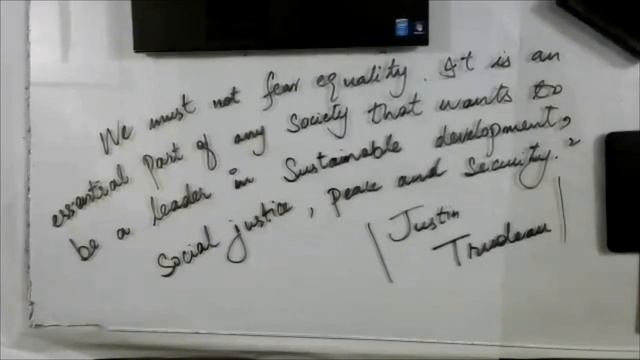 We must not fear equality. It is an
essential part of any Society that wants to
be a leader in Sustainable development,
Social justice, peace and security."
Justin
Trudeau